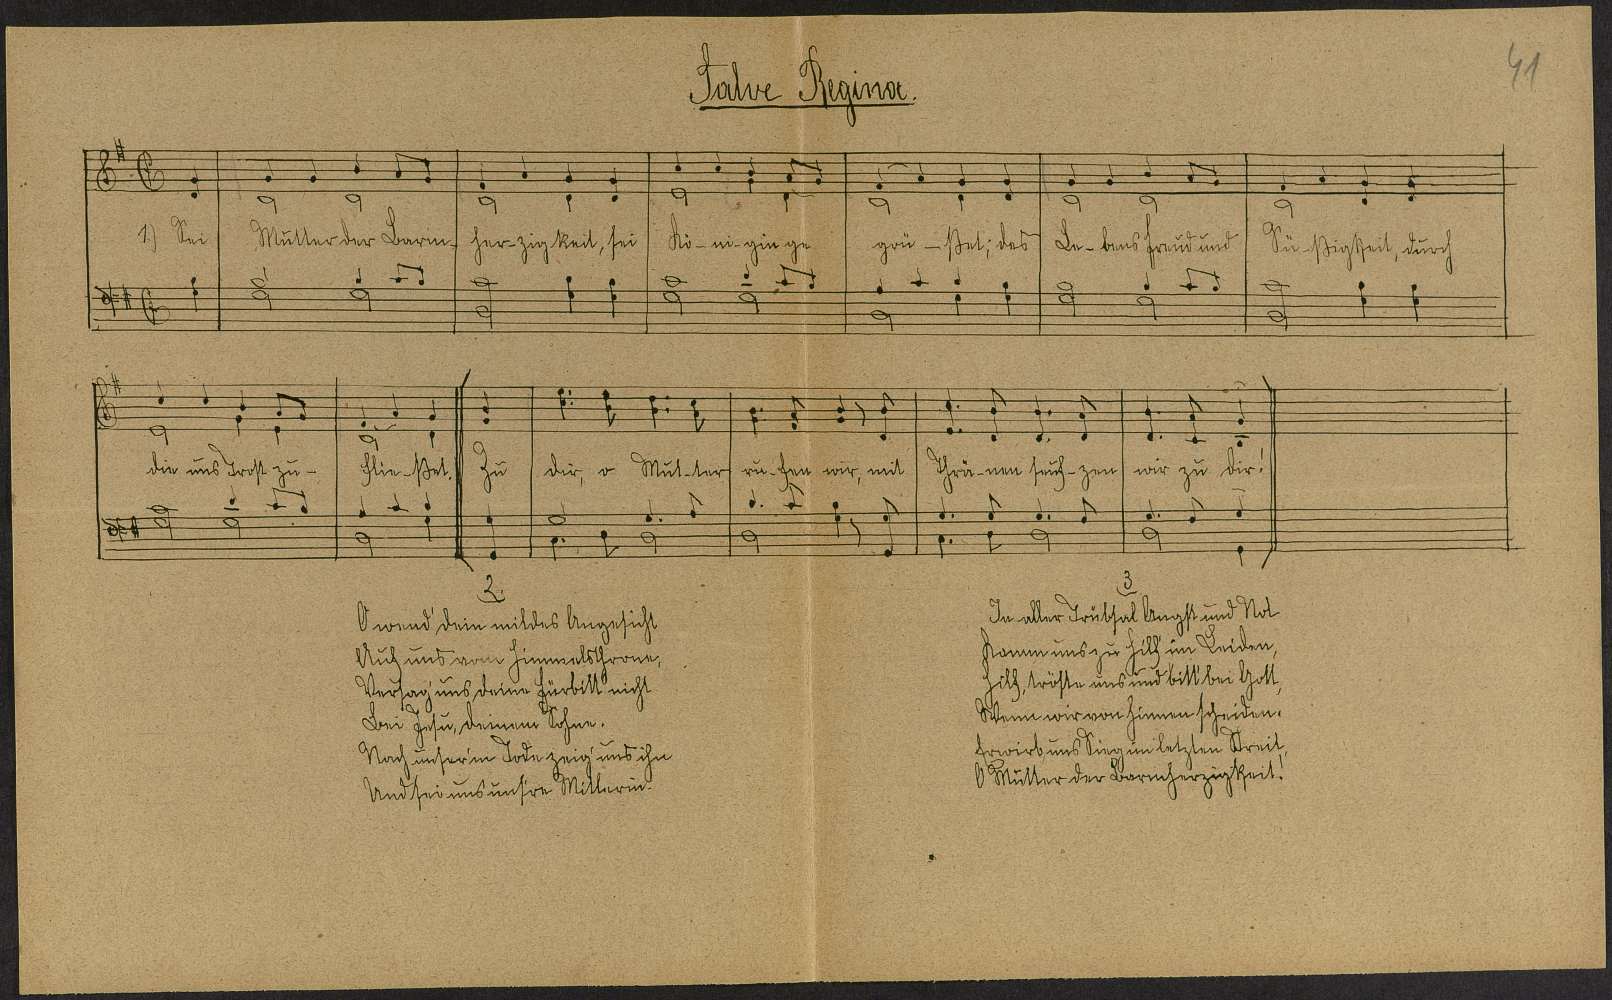 Salve Regina.
41
1.) Sei Mutter der Barm- her-zig keit, sei Kö-ni-gin ge grü-ßet; des Le-bens Freud und Sü-ßigkeit, durch
die uns Trost zu- flie-ßet. Zu dir, o Mut-ter ru-fen wir, mit Thrä-nen seuf-zen wir zu dir!
2.
O wend' dein mildes Angesicht
Auf uns vom Himmelsthrone,
Versag' uns deine Fürbitt' nicht
Bei Jesu, deinem Sohne.
Nach unser'm Tode zeig' uns ihn
Und sei uns unsre Mittlerin.
3
In aller Trübsal Angst und Not
Komm uns zu Hilf' im Leiden,
Hilf, tröste uns und bitt' bei Gott,
Wenn wir von hinnen scheiden.
Erwirb uns Sieg im letzten Streit,
O Mutter der Barmherzigkeit!